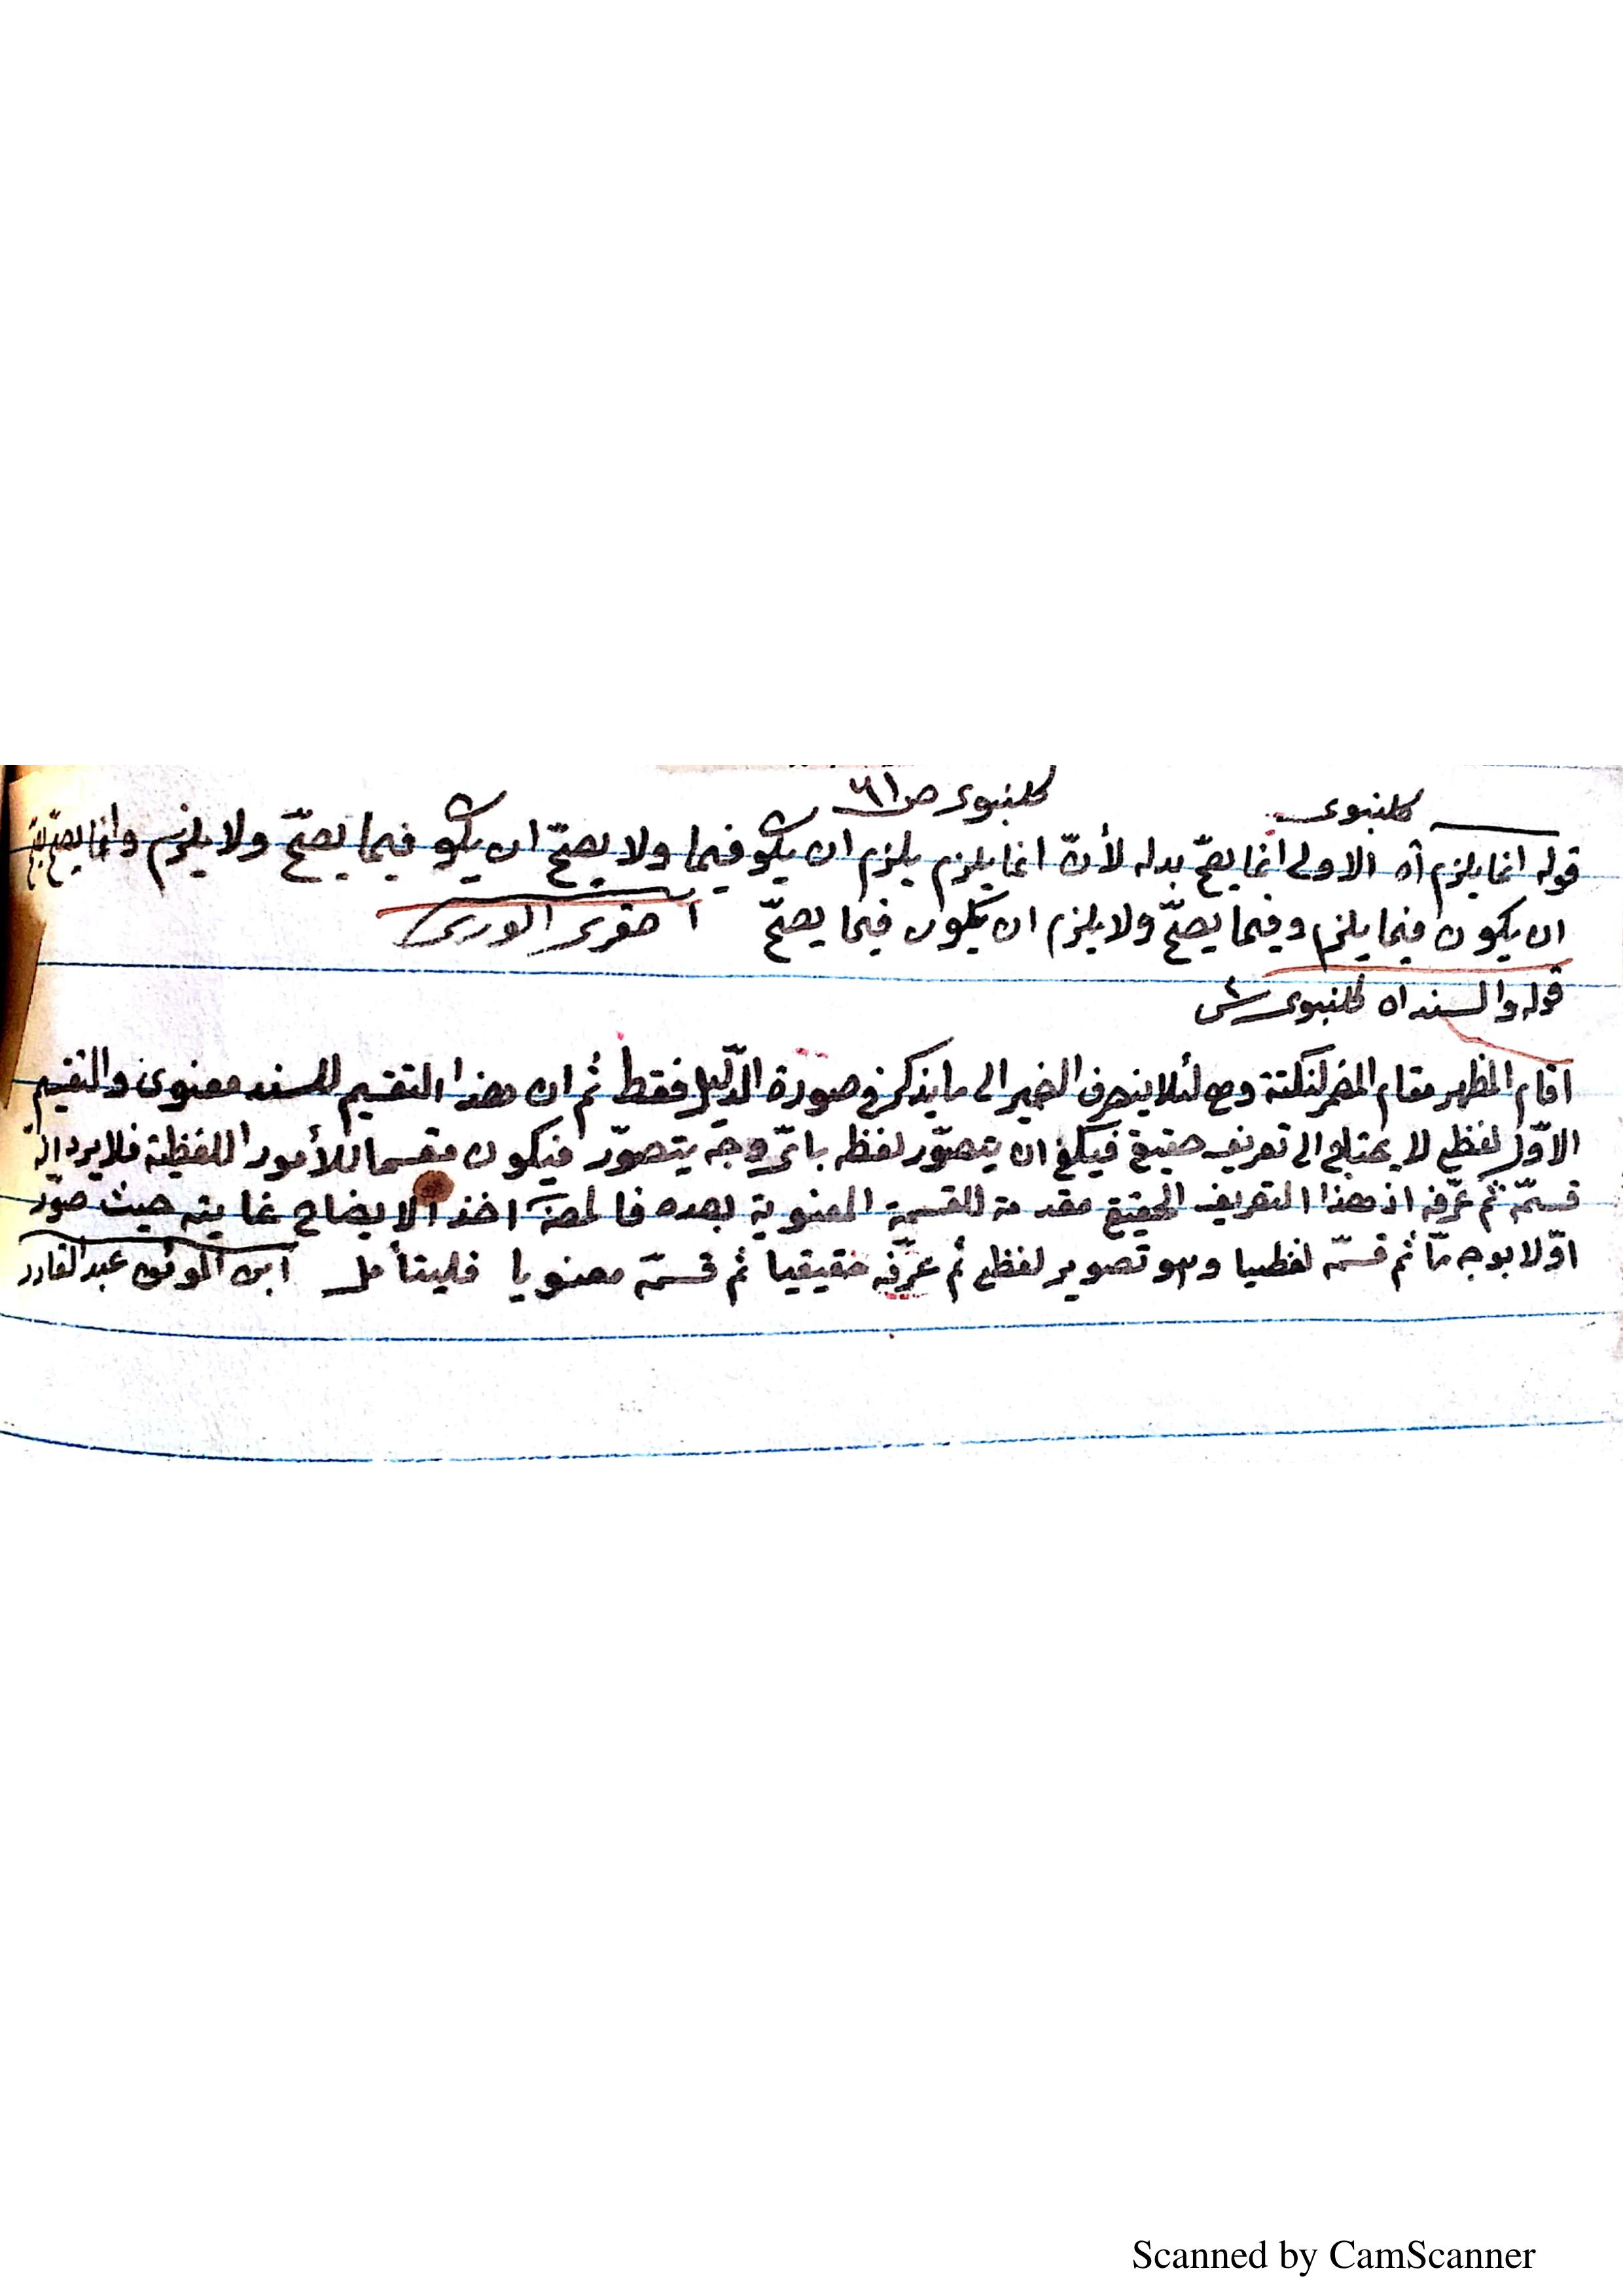 كلنبوى ص٦١
كلنبوى
قوله انما يلزم آه الاولى انما يصحّ بدله لأنّ انما يلزم يلزم ان يكو فيما ولا يصحّ ان يكو فيما يصحّ ولا يلزم وانما يصحّ
ان يكون فيما يلزم وفيما يصحّ ولا يلزم ان يكون فيما يصحّ
قوله والسند اه كلنبوى
اقام المظهر مقام المضمر لنكتة وهى لئلا ينصرف الضمير الى ما يذكر فى صورة الدّليل فقط ثم ان هذا التقسيم للسند معنوى والتقسيم
الاوّل لفظى لا يحتاج الى تعريف حقيقى فيكفى ان يتصوّر لفظه باىّ وجه يتصوّر فيكون مقسما للأمور اللفظية فلا يرد انّه
قسمّه ثم عرّفه اذ هذا التعريف الحقيقى مقدمة للقسمة المعنوية بعده اخذ الايضاح غايته حيث صوّر
اوّلا بوجه مّا ثم قسمّه لفظيا وهو تصوير لفظى ثم عرّفه حقيقيا ثم قسمّه معنويا فليتأمل عبد القادر
Scanned by CamScanner